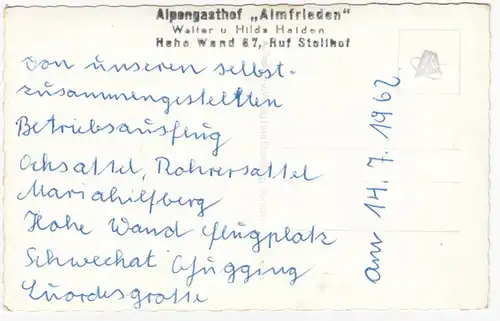 Alpengasthof „Almfrieden"
Walter u Hilda Haiden
Hohe Wand 67, Ruf Stollhof
von unseren selbst-
zusammengestellten
Betriebsausflug
Ochsattel, Rohrersattel
Mariahilfberg
Hohe Wand flugplatz
Schwechat Gugging
Luordesgrotte
am 14. 7. 1962